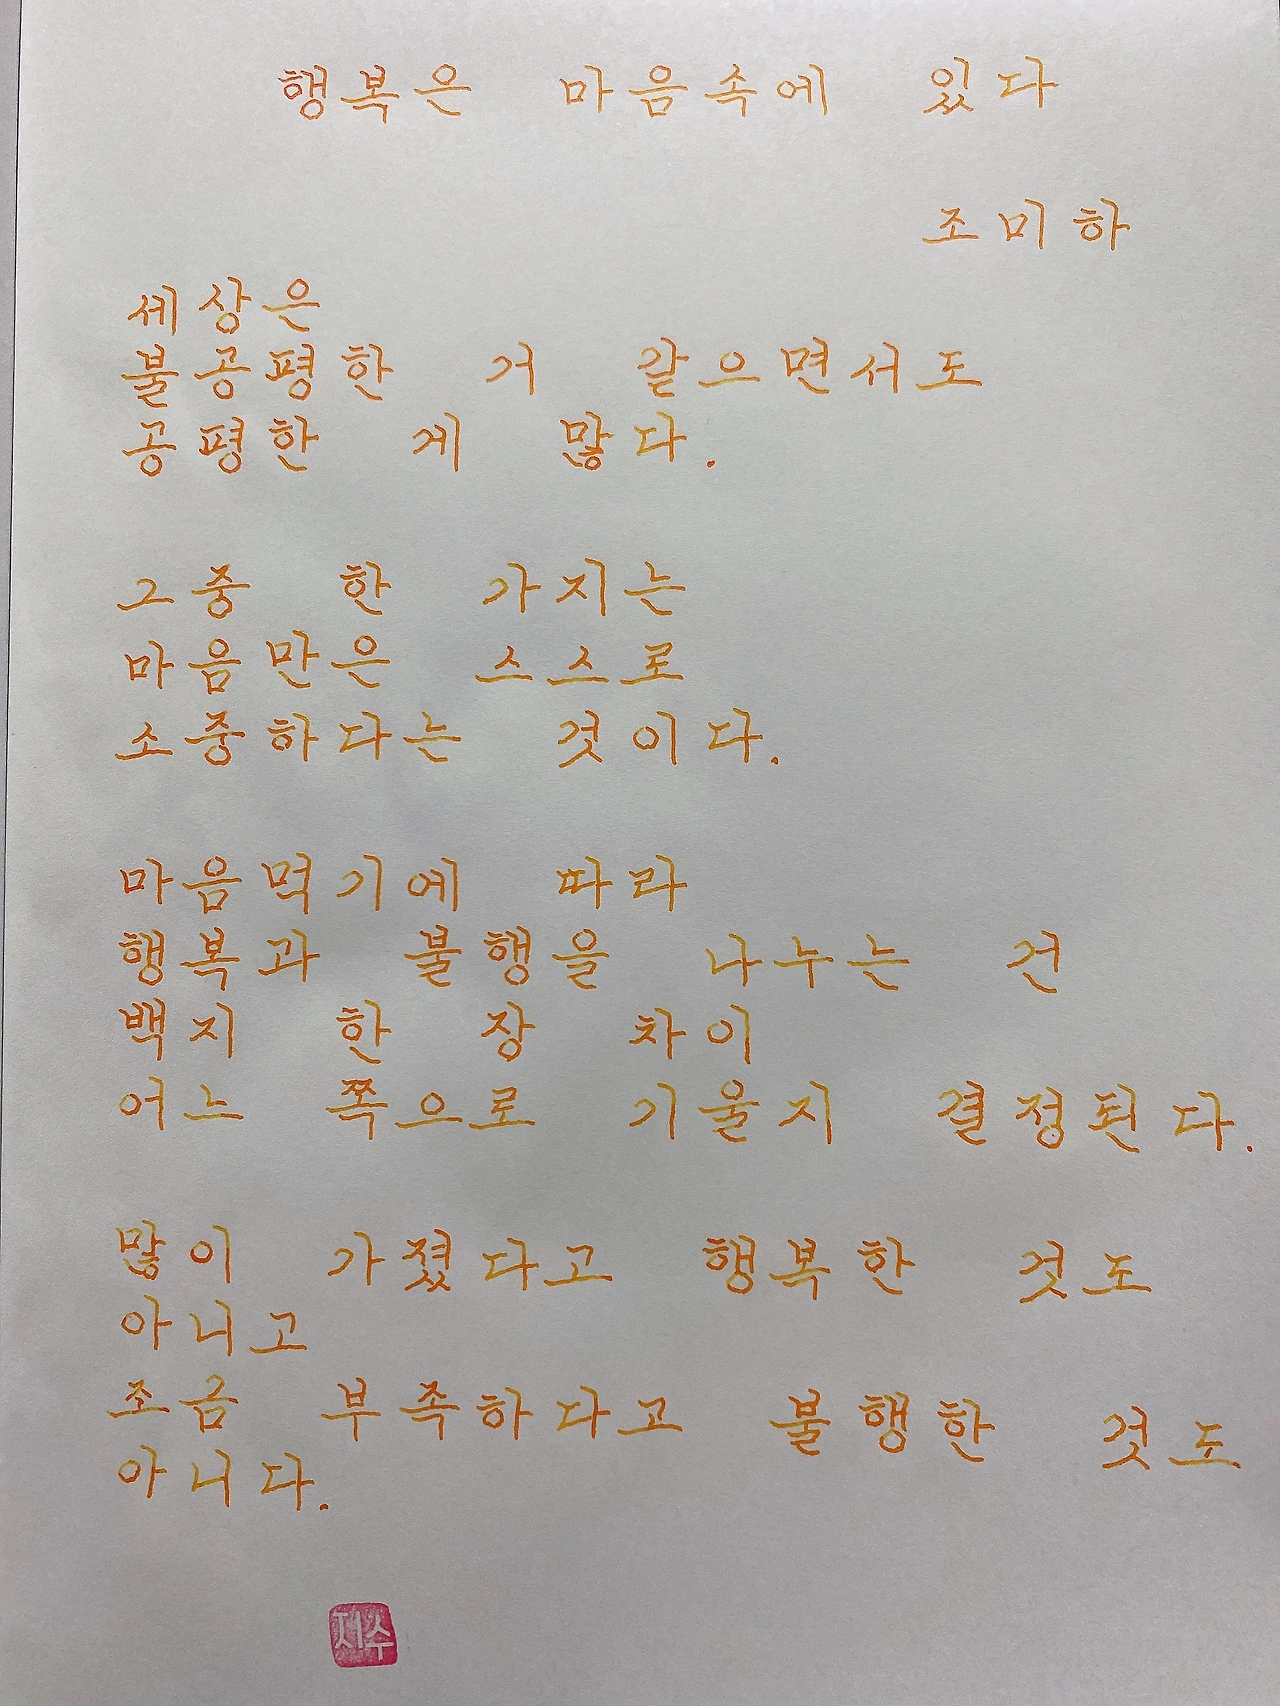 행복은 마음속에 있다
조미하
세상은
불공평한 거 같으면서도
공평한 게 많다.
그중 한 가지는
마음만은 스스로
소중하다는 것이다.
마음먹기에 따라
행복과 불행을 나누는 건
백지 한 장 차이
어느 쪽으로 기울지 결정된다.
많이 가졌다고 행복한 것도
아니고
조금 부족하다고 불행한 것도
아니다.